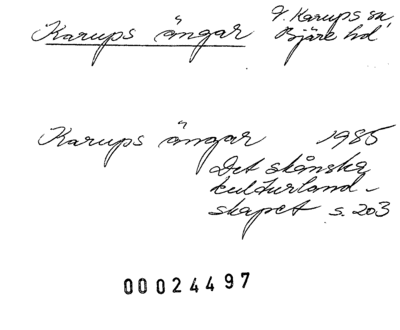 Karups ängar
V. Karups sn
Bjäre hd
Karups ängar 1985
Det skånska
kulturland-
skapet s. 203
00024497